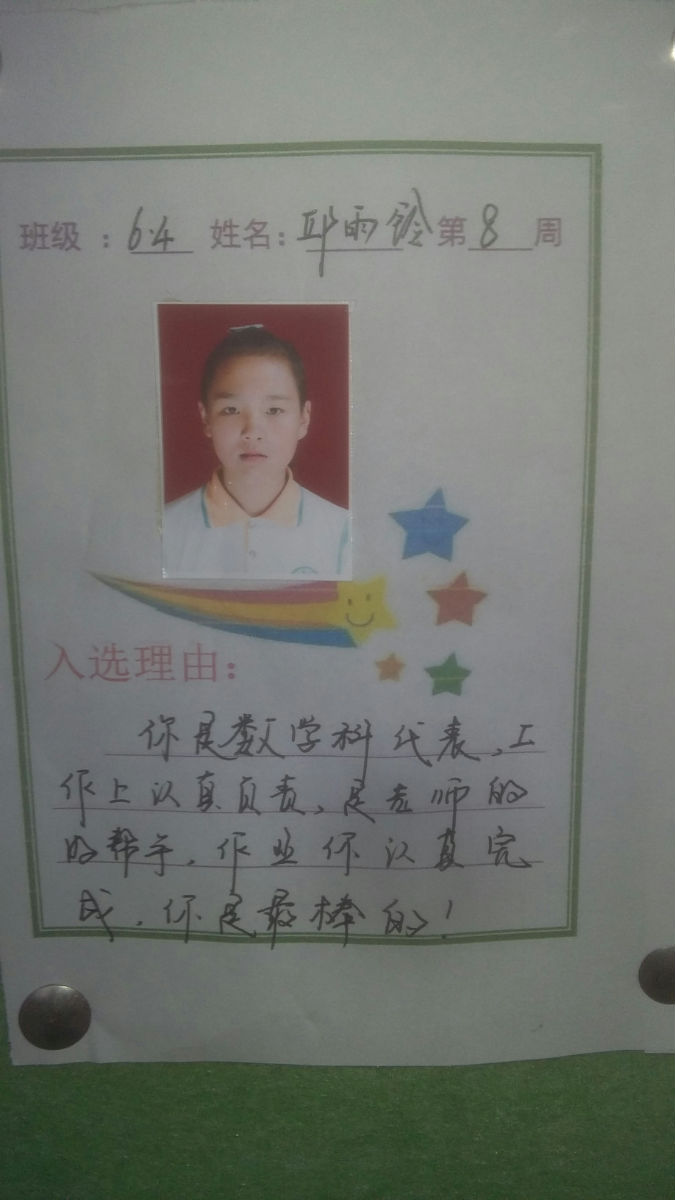 班级：6.4 姓名：邱雨铃 第8周
入选理由：
你是数学科代表，工
作上认真负责，是老师的
的帮手，作业你认真完
成，你是最棒的！